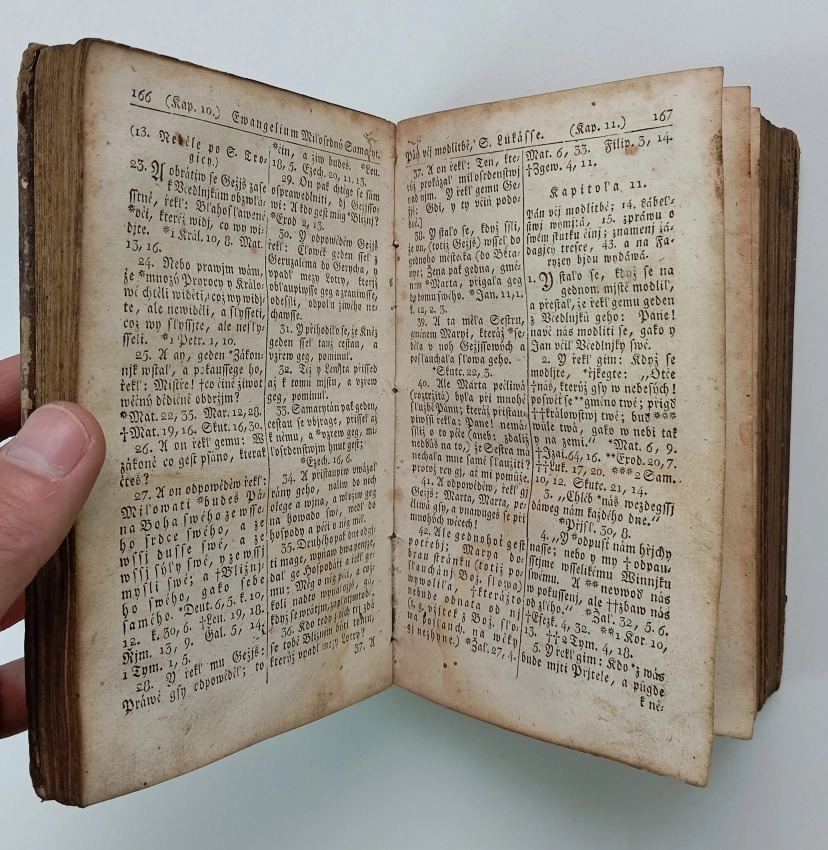 166 (Kap. 10.) Ewangelium Milosrdný Samaryt.
(13. Neděle po S. Tro-
gicy.)
23. A obrátiw se Gežjš zase
k Včedlnjkům obzwlá-
sstně, řekl: Blahoslawené
*oči, kteréž widj, co wy wi-
djte. *1 Král. 10, 8. Mat.
13, 16.
24. Nebo prawjm wám,
že *mnozý Prorocy y Králo-
wé chtěli widěti, což wy widj-
te, ale newiděli, a slysseti,
což wy slyssjte, ale neslys-
sseli. *1 Petr. 1, 10.
25. A ay, geden *Zákon-
njk wstal, a pokaussege ho,
řekl: Mistře! †co čině žiwot
wěčný dědičně obdržjm?
*Mat. 22, 35. Mar. 12, 28.
†Mat. 19, 16. Skut. 16, 30.
26. A on řekl gemu: W
zákoně co gest psáno, kterak
čteš?
27. A on odpowěděw řekl:
Milowati *budeš Pá-
na Boha swého ze wsse-
ho srdce swého, a ze
wssj dusse swé, a ze
wssj sýly swé, y ze wssj
mysli swé; a †Bližnj-
ho swého, gako sebe
samého. *Deut. 6, 5. k. 10,
12. k. 30, 6. †Lev. 19, 18.
Řjm. 13, 9. Gal. 5, 14.
1 Tym. 1, 5.
28. Y řekl mu Gežjš:
Práwě gsy odpowěděl; to
*čiň, a žiw budeš. *Lev.
18, 5. Ezech. 20, 11. 13.
29. On pak chtěge se sám
osprawedlniti, dj Gežjsso-
wi: A kdo gest můg *Bližnj?
*Exod 2, 13.
30. Y odpowěděw Gežjš
řekl: Člowěk geden ssel z
Geruzaléma do Gerycha, y
wpadl mezy Lotry, kteřjž
oblaupiwsse geg a zraniwsse,
odessli, odpolu žiwého ne-
chawsse.
31. Y přihodilo se, že Kněz
geden ssel tauž cestau, a
vzřew geg, pominul.
32. Též y Lewjta přissed
až k tomu mjstu, a vzřew
geg, pominul.
33. Samarytán pak geden,
cestau se vbjrage, přissel až
k němu, a *vzřew geg, mi-
losrdenstwjm hnut gest;
*Ezech. 16, 6.
34. A přistaupiw vwázal
rány geho, naliw do nich
olege a wjna, a wložiw geg
na howado swé, wedl do
hospody a péči o něg měl.
35. Druhého pak dne odgj-
ti mage, wyňaw dwa penjze,
dal ge Hospodáři a řekl ge-
mu: Měg o něg péči, a což-
koli nadto wynaložjš, gá,
když se wrátjm, zaplatjm tobě.
36. Kdo tedy z těch třj zdá
se tobě Bližnjm býti tomu,
kterýž wpadl mezy Lotry?
37. A
Pán věj modlitbě, S. Lukásse. (Kap. 11.) 167
37. A on řekl: Ten, kte-
rýž prokázal milosrdenstwj
nad njm. Y řekl gemu Ge-
žjš: Gdi, y ty včiň podo-
bně.)
38. Y stalo se, když ssli,
že on, (totiž Gežjš) wssel do
gednoho městečka (do Béta-
nye; Žena pak gedna, gmé-
nem *Marta, přigala geg
do domu swého. *Jan. 11, 1.
k. 12, 2. 3.
39. A ta měla Sestru,
gménem Maryi, kteráž *se-
děla v noh Gežjssowých a
posłauchała slowa geho.
*Skutc. 22, 3.
40. Ale Marta pečliwá
(roztržitá) byla při mnohé
službě Pánu; kteráž přistau-
piwssi řekla: Pane! nemá-
ssliž o to péče (aneb: zdaliž
nedbáš na to,) že Sestra má
nechala mne samé slaužiti?
protož rcy gj, ať mi pomůže.
41. A odpowěděw, řekl gj
Gežjš: Marta, Marta, pe-
čliwá gsy, a vnawugeš se při
mnohých wěcech!
42. Ale gednohoť gest
potřebj; Marya dob-
brau stránku (totiž po-
slauchánj Bož. slowa)
wywolila, †kterážto
nebude odňata od nj
(t. g. vžitek z Bož. slo-
wa poslauch. na wěky
gj nezhyne.) *Žal. 27, 4.
Mat. 6, 33. Filip. 3, 14.
†3gew. 4, 11.
Kapitola 11.
Pán věj modlitbě; 14. ďábel-
stwj wymjtá, 15. zpráwu o
swém skutku činj; znamenj žá-
dagjcý tresce, 43. a na Fa-
ryzey bjdu wydáwá.
1. Y stalo se, když se na
gednom mjstě modlil,
a přestal, že řekl gemu geden
z Včedlnjků geho: Pane!
nauč nás modliti se, gako y
Jan včil Včedlnjky swé.
2. Y řekl gim: Když se
modljte, *řjkegte: „Otče
†náš, kterýž gsy w nebesých!
poswěť se **gméno twé; přiďď
††králowstwj twé; buď ***
wůle twá, gako w nebi tak
y na zemi.“ *Mat. 6, 9.
†Izai. 64, 16. **Exod. 20, 7.
††Luk. 17, 20. ***2 Sam.
10, 12. Skutc. 21, 14.
3. „Chléb *náš wezdegssj
dáweg nám každého dne.“
*Přjsl. 30, 8.
4. „Y *odpusť nám hřjchy
nasse; nebo y my †odpau-
sstjme wsselikému Winnjku
swému. A **neuwoď nás
w pokussenj, ale ††zbaw nás
od zlého.“ *Žal. 32, 5. 6.
†Efez. 4, 32. **1 Kor. 10,
13. ††2 Tym. 4, 18.
5. Y řekl gim: Kdo *z wás
bude mjti Přjtele, a půgde
k ně-